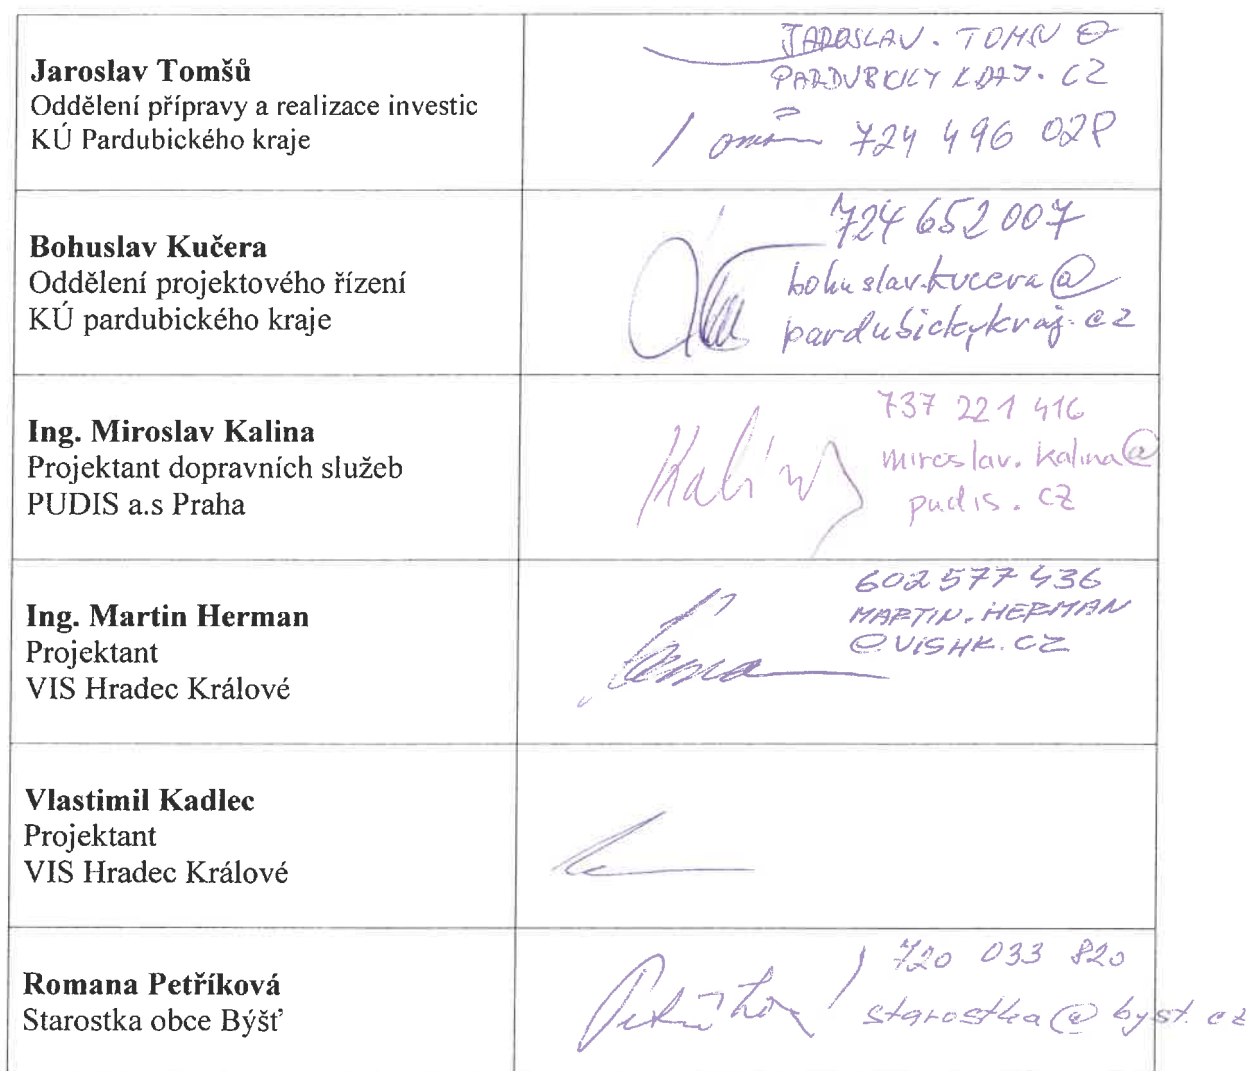 Jaroslav Tomšů
Oddělení přípravy a realizace investic
KÚ Pardubického kraje
JAROSLAV. TOMSU @
PARDUBICKY KRAJ. CZ
724 496 028
Bohuslav Kučera
Oddělení projektového řízení
KÚ pardubického kraje
724 652 007
bohuslav.kucera@
pardubickykraj.cz
Ing. Miroslav Kalina
Projektant dopravních služeb
PUDIS a.s Praha
Kalina
737 221 416
miroslav. kalina@
pudis. cz
Ing. Martin Herman
Projektant
VIS Hradec Králové
602 577 436
MARTIN. HERMAN
@VISHK. CZ
Vlastimil Kadlec
Projektant
VIS Hradec Králové
Romana Petříková
Starostka obce Býšť
720 033 820
starostka@byst.cz